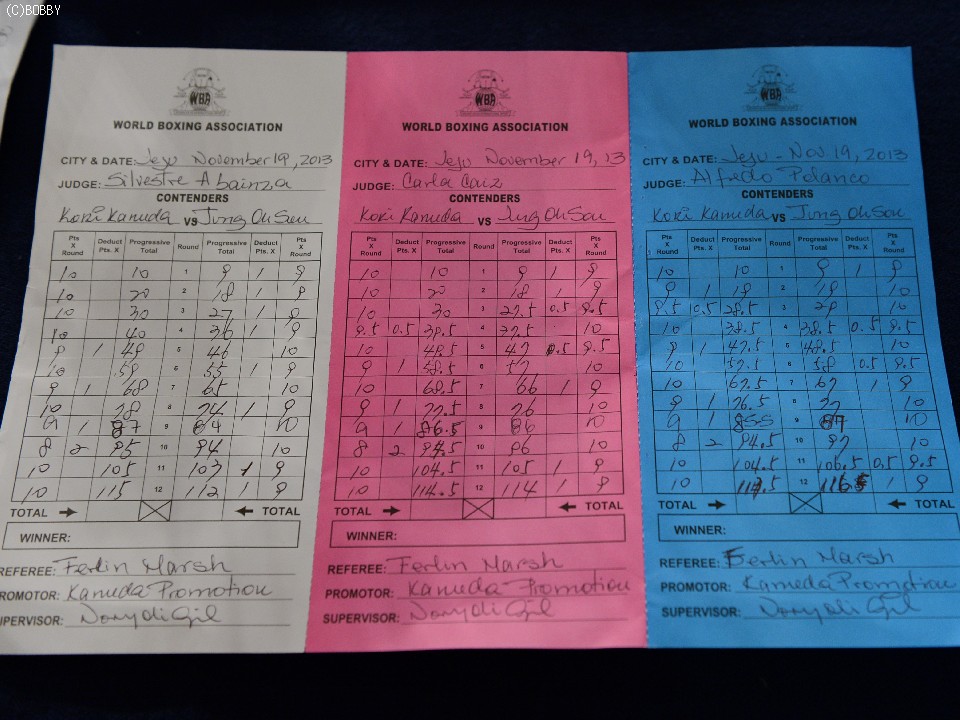 (C)BOBBY
WBA
WORLD BOXING ASSOCIATION
CITY & DATE: Jeju November 19, 2013
JUDGE: Silvestre Abainza
CONTENDERS
Koki Kameda VS Jung Oh Son
Pts X Round Deduct Pts. X Progressive Total Round Progressive Total Deduct Pts. X Pts X Round
10 10 1 9 1 9
10 20 2 18 1 9
10 30 3 27 1 9
10 40 4 36 1 9
9 1 49 5 46 10
10 59 6 55 1 9
9 1 68 7 65 10
10 78 8 74 1 9
9 1 87 9 84 10
8 2 95 10 94 10
10 105 11 103 1 9
10 115 12 112 1 9
TOTAL TOTAL
WINNER:
REFEREE: Ferlin Marsh
PROMOTOR: Kameda Promotion
SUPERVISOR:
WBA
WORLD BOXING ASSOCIATION
CITY & DATE: Jeju November 19, 13
JUDGE: Carla Caiz
CONTENDERS
Koki Kameda VS Jung Oh Son
Pts X Round Deduct Pts. X Progressive Total Round Progressive Total Deduct Pts. X Pts X Round
10 10 1 9 1 9
10 20 2 18 1 9
10 30 3 27.5 0.5 9.5
9.5 0.5 39.5 4 37.5 10
10 49.5 5 47 0.5 9.5
9 1 58.5 6 57 10
10 68.5 7 66 1 9
9 1 77.5 8 76 10
9 1 86.5 9 86 10
8 2 94.5 10 96 10
10 104.5 11 105 1 9
10 114.5 12 114 1 9
TOTAL TOTAL
WINNER:
REFEREE: Ferlin Marsh
PROMOTOR: Kameda Promotion
SUPERVISOR:
WBA
WORLD BOXING ASSOCIATION
CITY & DATE: Jeju - Nov. 19, 2013
JUDGE: Alfredo Polanco
CONTENDERS
Koki Kameda VS Jung Oh Son
Pts X Round Deduct Pts. X Progressive Total Round Progressive Total Deduct Pts. X Pts X Round
10 10 1 9 1 9
9 1 19 2 19 10
9.5 0.5 28.5 3 29 10
10 38.5 4 38.5 0.5 9.5
9 1 47.5 5 48.5 10
10 57.5 6 58 0.5 9.5
10 67.5 7 67 1 9
9 1 76.5 8 77 10
9 1 85.5 9 87 10
8 2 94.5 10 97 10
10 104.5 11 106.5 0.5 9.5
10 12 1 9
TOTAL TOTAL
WINNER:
REFEREE: Ferlin Marsh
PROMOTOR: Kameda Promotion
SUPERVISOR: